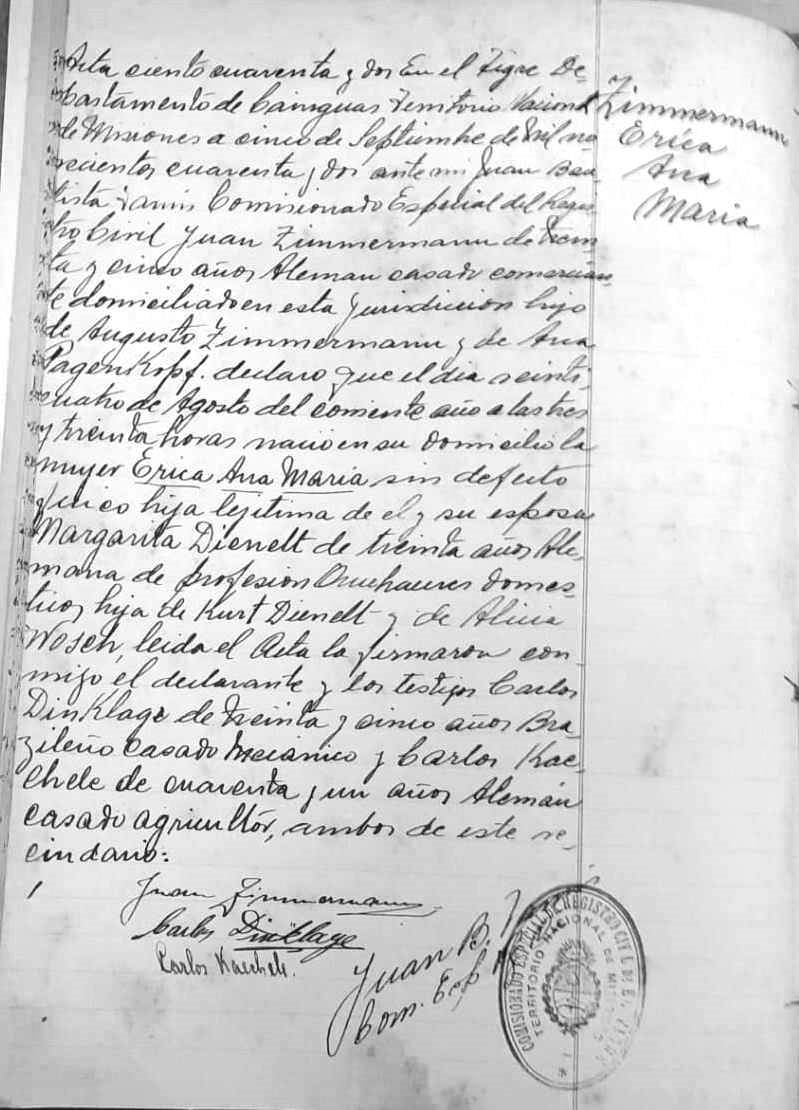 Acta ciento cuarenta y dos En el Tigre De-
partamento de Cainguas Territorio Nacional
de Misiones a cinco de Septiembre de Mil no
vecientos cuarenta y dos ante mi Juan Bau
tista Comisionado Especial del Regis
tro Civil Juan Zimmermann de trein
ta y cinco años Aleman casado comercian
te domiciliado en esta jurisdicion hijo
de Augusto Zimmermann y de Ana
Pagenkopf. declaro que el dia veinti
cuatro de Agosto del corriente año a las tres
y treinta horas nacio en su domicilio la
mujer Erica Ana Maria sin defecto
fisico hija lejitima de el y su esposa
Margarita Dienelt de treinta años Ale
mana de profesion Quehaceres domes-
ticos hija de Kurt Dienelt y de Alicia
Wosch, leida el Acta la firmaron con
migo el declarante y los testigos Carlos
Dinklage de treinta y cinco años Bra
zileño casado Mecánico y Carlos Kae-
chele de cuarenta y un años Alemán
casado agricultor, ambos de este ve-
cindario:
Zimmermann
Erica
Ana
Maria
Juan Zimmermann
Carlos Dinklage
Carlos Kaechele.
Juan B.
Com. Esp
COMISIONADO ESPECIAL DE REGISTRO CIVIL
TERRITORIO NACIONAL DE